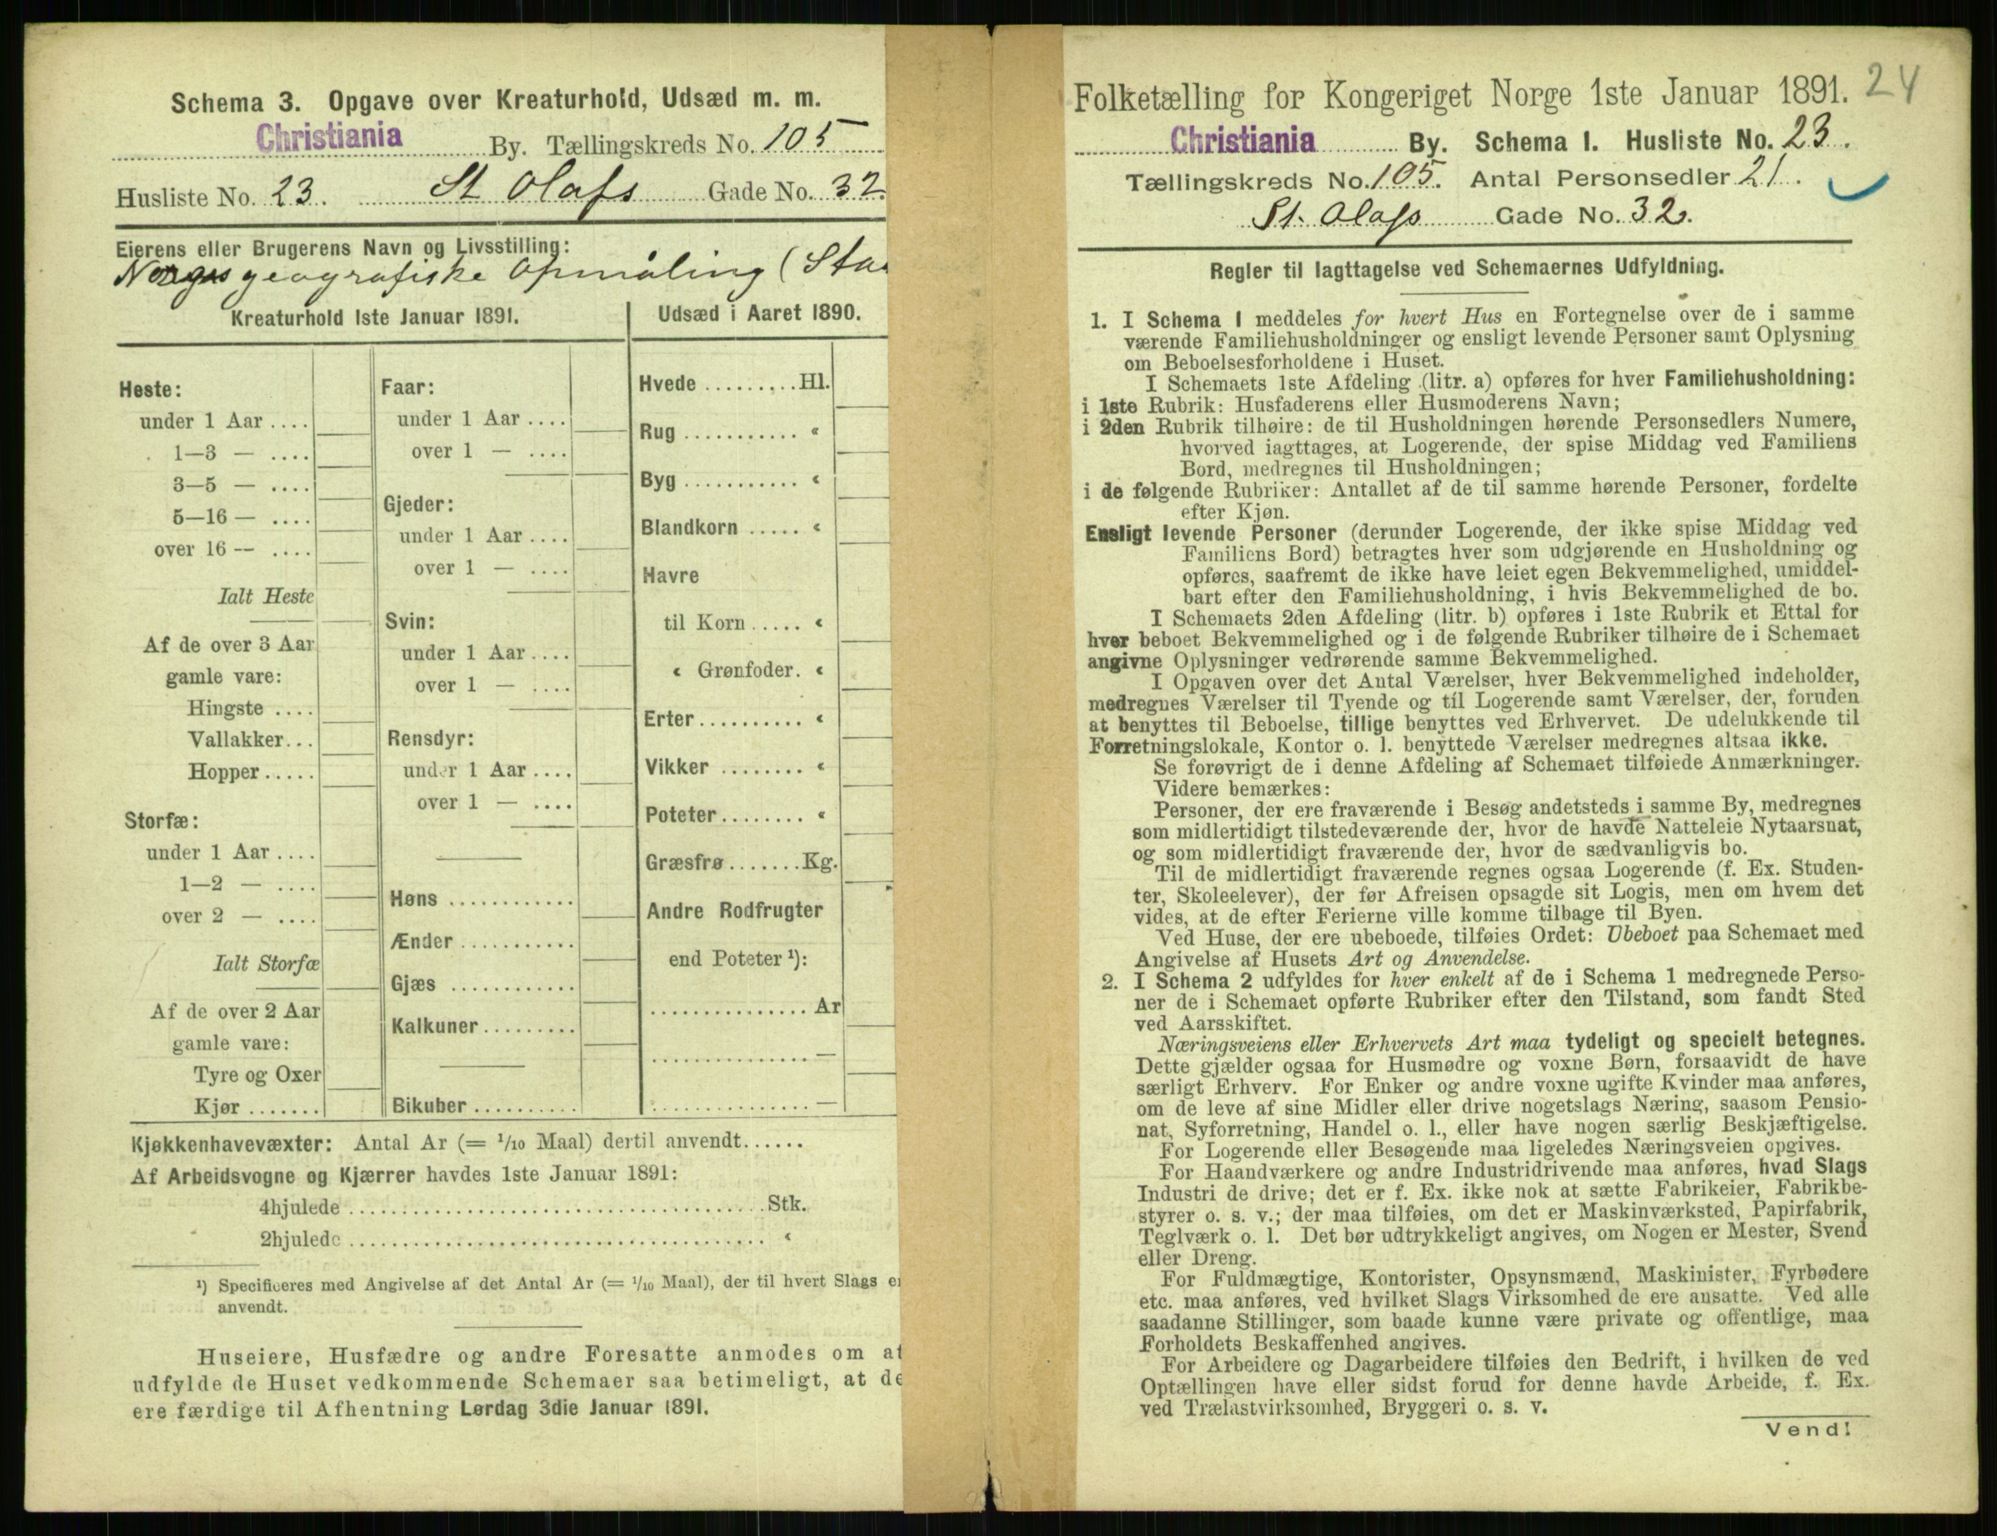 Schema 3. Opgave over Kreaturhold, Udsæd m. m.
Christiania By. Tællingskreds No. 105
Husliste No. 23. St Olafs Gade No. 32.
Eierens eller Brugerens Navn og Livsstilling:
Norges geografiske Opmåling (Sta
Kreaturhold 1ste Januar 1891.
Heste:
under 1 Aar ....
1—3 — ....
3—5 — ....
5—16 — ....
over 16 — ....
Ialt Heste
Af de over 3 Aar
gamle vare:
Hingste ....
Vallakker...
Hopper.....
Storfæ:
under 1 Aar ....
1—2 — ....
over 2 — ....
Ialt Storfæ
Af de over 2 Aar
gamle vare:
Tyre og Oxer
Kjør .......
Faar:
under 1 Aar ....
over 1 — ....
Gjeder:
under 1 Aar ....
over 1 — ....
Svin:
under 1 Aar ....
over 1 — ....
Rensdyr:
under 1 Aar ....
over 1 — ....
Høns ............
Ænder ...........
Gjæs ............
Kalkuner.........
Bikuber ..........
Udsæd i Aaret 1890.
Hvede .........Hl.
Rug ........... «
Byg ........... «
Blandkorn ..... «
Havre
til Korn ..... «
« Grønfoder. «
Erter.......... «
Vikker ........ «
Poteter........ «
Græsfrø .......Kg.
Andre Rodfrugter
end Poteter ¹):
............... Ar
............... —
............... —
Kjøkkenhavevæxter: Antal Ar (= 1/10 Maal) dertil anvendt......
Af Arbeidsvogne og Kjærrer havdes 1ste Januar 1891:
4hjulede ....................................Stk.
2hjulede .................................... «
¹) Specificeres med Angivelse af det Antal Ar (= 1/10 Maal), der til hvert Slags er
anvendt.
Huseiere, Husfædre og andre Foresatte anmodes om at
udfylde de Huset vedkommende Schemaer saa betimeligt, at de
ere færdige til Afhentning Lørdag 3die Januar 1891.
Folketælling for Kongeriget Norge 1ste Januar 1891. 24
Christiania By. Schema I. Husliste No. 23.
Tællingskreds No. 105. Antal Personsedler 21.
St. Olafs Gade No. 32.
Regler til Iagttagelse ved Schemaernes Udfyldning.
1. I Schema 1 meddeles for hvert Hus en Fortegnelse over de i samme
værende Familiehusholdninger og ensligt levende Personer samt Oplysning
om Beboelsesforholdene i Huset.
I Schemaets 1ste Afdeling (litr. a) opføres for hver Familiehusholdning:
i 1ste Rubrik: Husfaderens eller Husmoderens Navn;
i 2den Rubrik tilhøire: de til Husholdningen hørende Personsedlers Numere,
hvorved iagttages, at Logerende, der spise Middag ved Familiens
Bord, medregnes til Husholdningen;
i de følgende Rubriker: Antallet af de til samme hørende Personer, fordelte
efter Kjøn.
Ensligt levende Personer (derunder Logerende, der ikke spise Middag ved
Familiens Bord) betragtes hver som udgjørende en Husholdning og
opføres, saafremt de ikke have leiet egen Bekvemmelighed, umiddel-
bart efter den Familiehusholdning, i hvis Bekvemmelighed de bo.
I Schemaets 2den Afdeling (litr. b) opføres i 1ste Rubrik et Ettal for
hver beboet Bekvemmelighed og i de følgende Rubriker tilhøire de i Schemaet
angivne Oplysninger vedrørende samme Bekvemmelighed.
I Opgaven over det Antal Værelser, hver Bekvemmelighed indeholder,
medregnes Værelser til Tyende og til Logerende samt Værelser, der, foruden
at benyttes til Beboelse, tillige benyttes ved Erhvervet. De udelukkende til
Forretningslokale, Kontor o. l. benyttede Værelser medregnes altsaa ikke.
Se forøvrigt de i denne Afdeling af Schemaet tilføiede Anmærkninger.
Videre bemærkes:
Personer, der ere fraværende i Besøg andetsteds i samme By, medregnes
som midlertidigt tilstedeværende der, hvor de havde Natteleie Nytaarsnat,
og som midlertidigt fraværende der, hvor de sædvanligvis bo.
Til de midlertidigt fraværende regnes ogsaa Logerende (f. Ex. Studen-
ter, Skoleelever), der før Afreisen opsagde sit Logis, men om hvem det
vides, at de efter Ferierne ville komme tilbage til Byen.
Ved Huse, der ere ubeboede, tilføies Ordet: Ubeboet paa Schemaet med
Angivelse af Husets Art og Anvendelse.
2. I Schema 2 udfyldes for hver enkelt af de i Schema 1 medregnede Perso-
ner de i Schemaet opførte Rubriker efter den Tilstand, som fandt Sted
ved Aarsskiftet.
Næringsveiens eller Erhvervets Art maa tydeligt og specielt betegnes.
Dette gjælder ogsaa for Husmødre og voxne Børn, forsaavidt de have
særligt Erhverv. For Enker og andre voxne ugifte Kvinder maa anføres,
om de leve af sine Midler eller drive nogetslags Næring, saasom Pensio-
nat, Syforretning, Handel o. l., eller have nogen særlig Beskjæftigelse.
For Logerende eller Besøgende maa ligeledes Næringsveien opgives.
For Haandværkere og andre Industridrivende maa anføres, hvad Slags
Industri de drive; det er f. Ex. ikke nok at sætte Fabrikeier, Fabrikbe-
styrer o. s. v.; der maa tilføies, om det er Maskinværksted, Papirfabrik,
Teglværk o. l. Det bør udtrykkeligt angives, om Nogen er Mester, Svend
eller Dreng.
For Fuldmægtige, Kontorister, Opsynsmænd, Maskinister, Fyrbødere
etc. maa anføres, ved hvilket Slags Virksomhed de ere ansatte. Ved alle
saadanne Stillinger, som baade kunne være private og offentlige, maa
Forholdets Beskaffenhed angives.
For Arbeidere og Dagarbeidere tilføies den Bedrift, i hvilken de ved
Optællingen have eller sidst forud for denne havde Arbeide, f. Ex.
ved Trælastvirksomhed, Bryggeri o. s. v.
Vend!